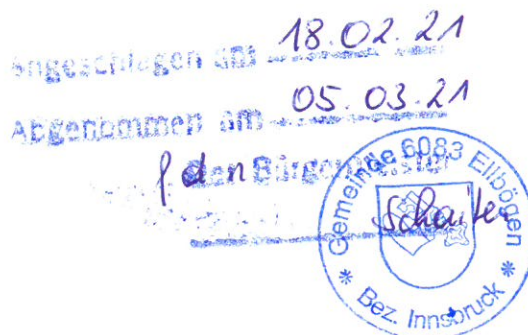 Angeschlagen am 18.02.21
Abgenommen am 05.03.21
f den Bürgermeister
Gemeinde 6083 Ellbögen
* Bez. Innsbruck *